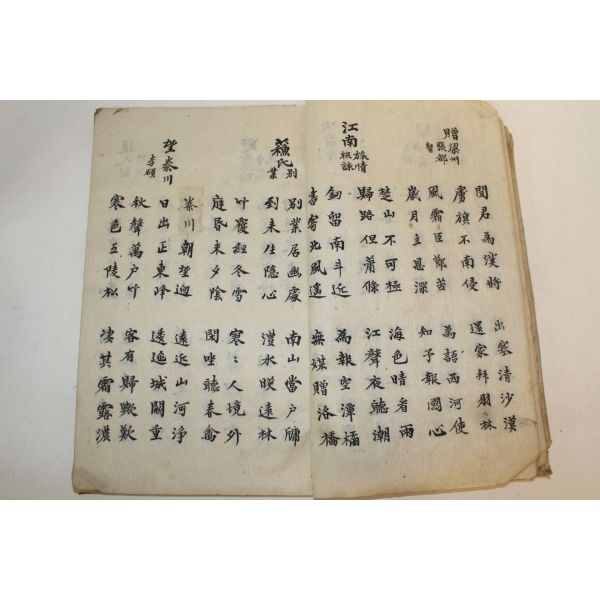 贈梁州張都督
聞君為漢將
虜旗不南侵
出塞清沙漠
還家拜羽林
風霜臣節苦
歲月主恩深
為語西河使
知予報國心
江南旅情
祖詠
楚山不可極
歸路但蕭條
海色晴看雨
江聲夜聽潮
釰留南斗近
書寄北風遙
為報空潭橘
無媒贈洛橋
蘇氏別業
別業居幽處
到来生隐心
南山當戶牖
澧水暎遠林
竹覆經冬雪
庭昏未夕陰
寒〻人境外
閑坐聽春禽
望秦川
李碩
秦川朝望迥
日出正東峰
遠近山河淨
逶迤城闕重
秋聲萬戶竹
寒色五陵松
客有歸歟歎
凄其霜露濃